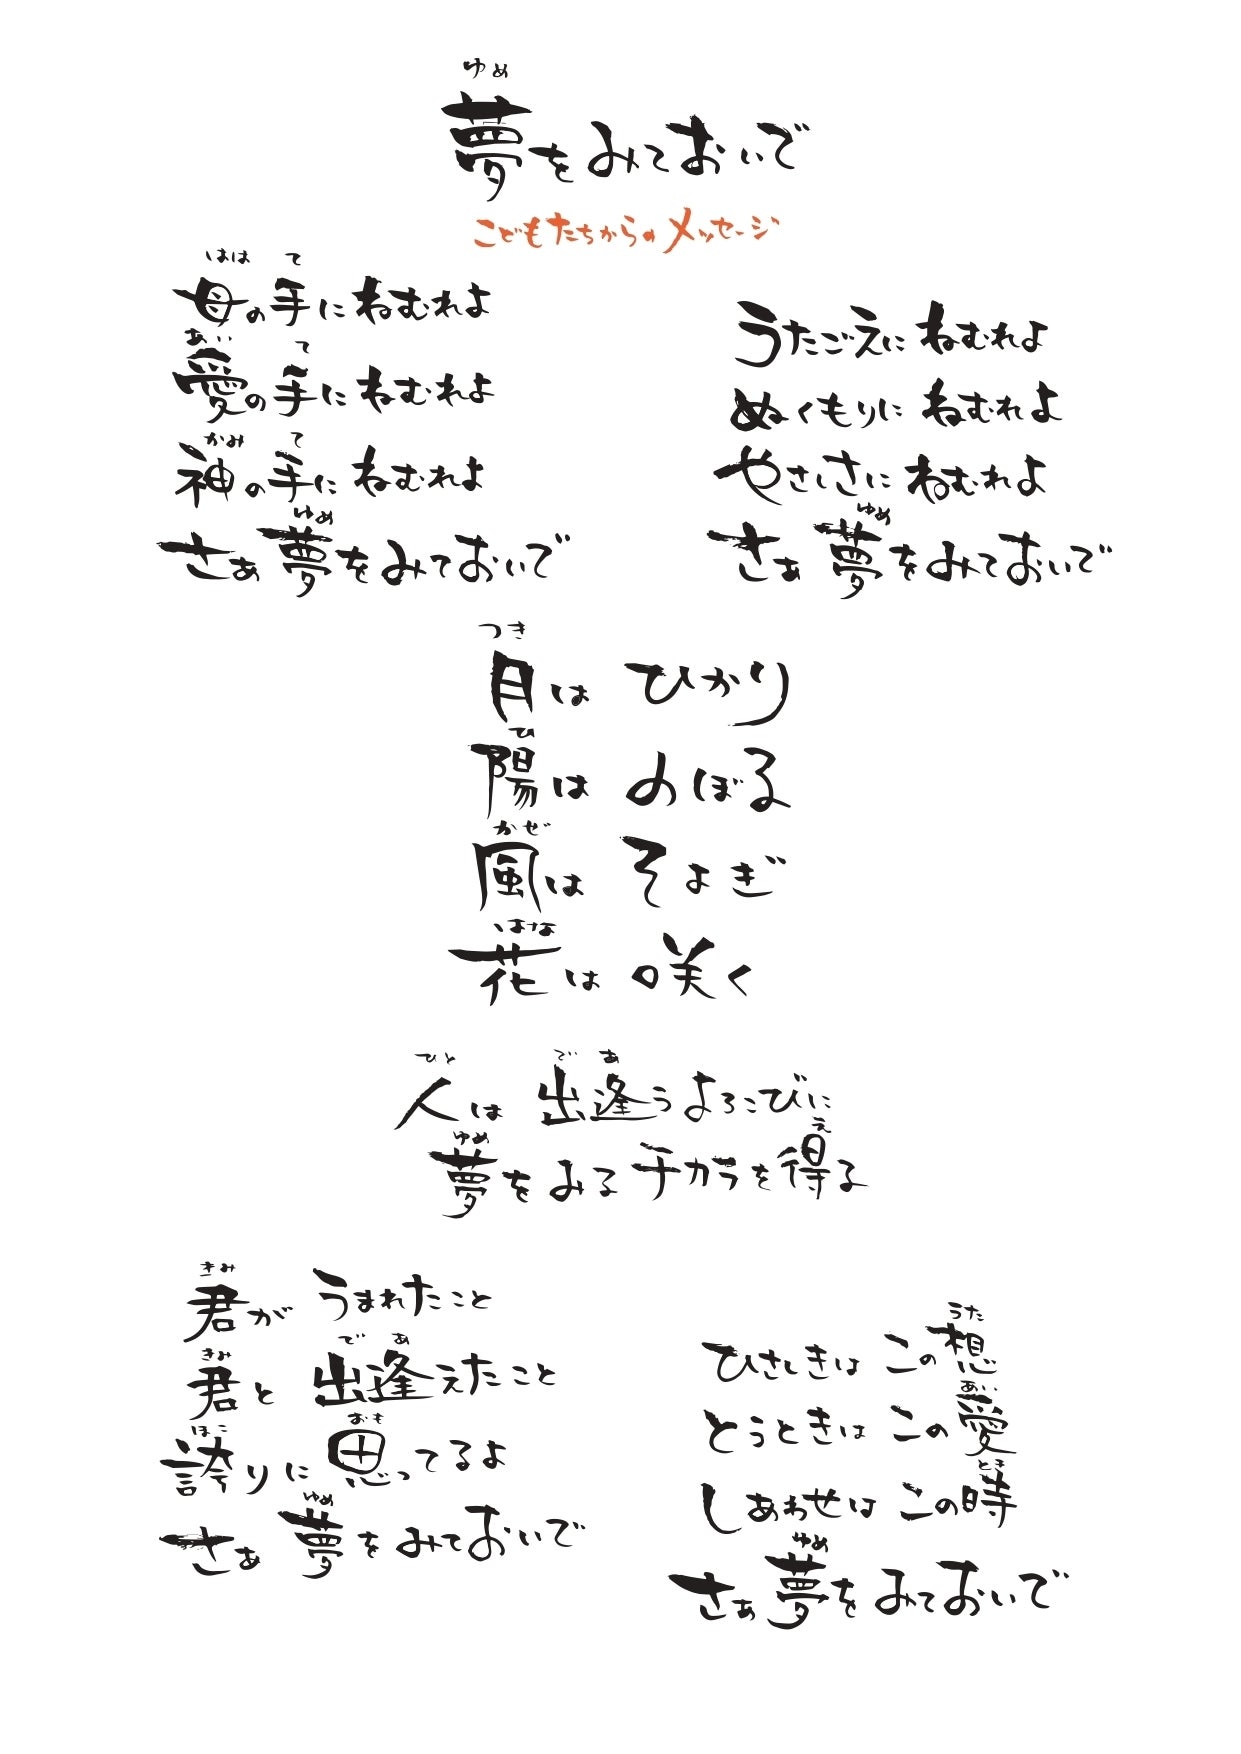 ゆめ
夢をみておいで
こどもたちからのメッセージ
はは て
母の手にねむれよ
あい て
愛の手にねむれよ
かみ て
神の手にねむれよ
ゆめ
さぁ夢をみておいで
うたごえに ねむれよ
ぬくもりに ねむれよ
やさしさに ねむれよ
ゆめ
さぁ 夢をみておいで
つき
月は ひかり
ひ
陽は のぼる
かぜ
風は そよぎ
はな
花は 咲く
ひと で あ
人は 出逢うよろこびに
ゆめ え
夢をみるチカラを得る
きみ
君が うまれたこと
きみ で あ
君と 出逢えたこと
ほこ おも
誇りに 思ってるよ
ゆめ
さぁ 夢を みておいで
うた
ひさしきは この想
あい
とうときは この愛
とき
しあわせは この時
ゆめ
さぁ夢を みておいで